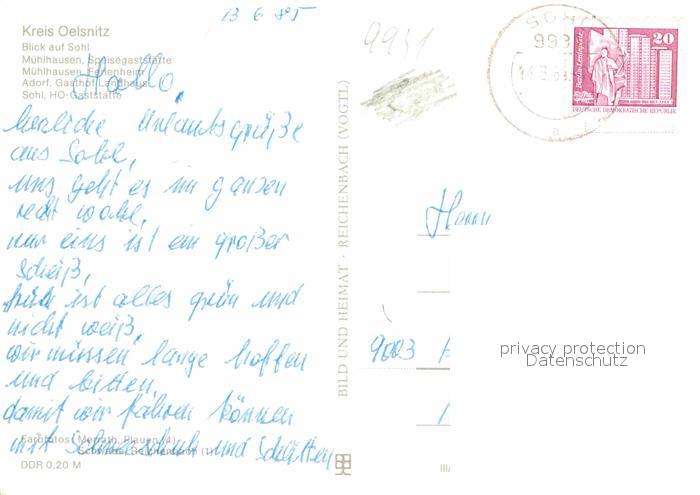 13 6 85
Kreis Oelsnitz
Blick auf Sohl
Mühlhausen, Speisegaststätte
Mühlhausen, Ferienheim
Adorf, Gasthof Landhaus
Sohl, HO-Gaststätte
Hallo,
herzliche Urlaubsgrüße
aus Sohl,
uns geht es im ganzen
recht wohl,
nur eins ist ein großer
Scheiß,
ist alles grün und
nicht weiß,
wir müssen lange hoffen
und bitten,
damit wir fahren können
mit Schneeschuh und Schlitten
Farbfotos: Plauen (4)
Reichenbach (1)
DDR 0,20 M
BILD UND HEIMAT · REICHENBACH (VOGTL)
9931
993
20
Berlin-Leninplatz
DEUTSCHE DEMOKRATISCHE REPUBLIK
Herrn
9003
privacy protection
Datenschutz
III/